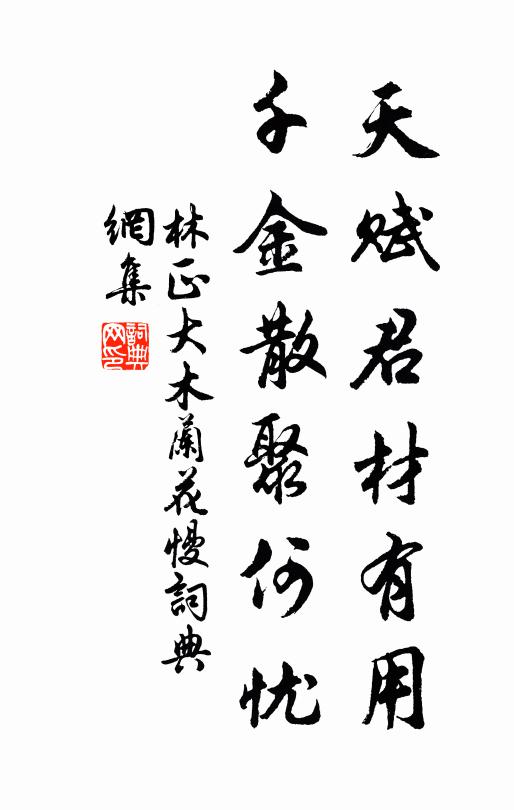 天赋君材有用
千金散聚何忧
林正大木蘭花慢詞典
網集
詞典
网印